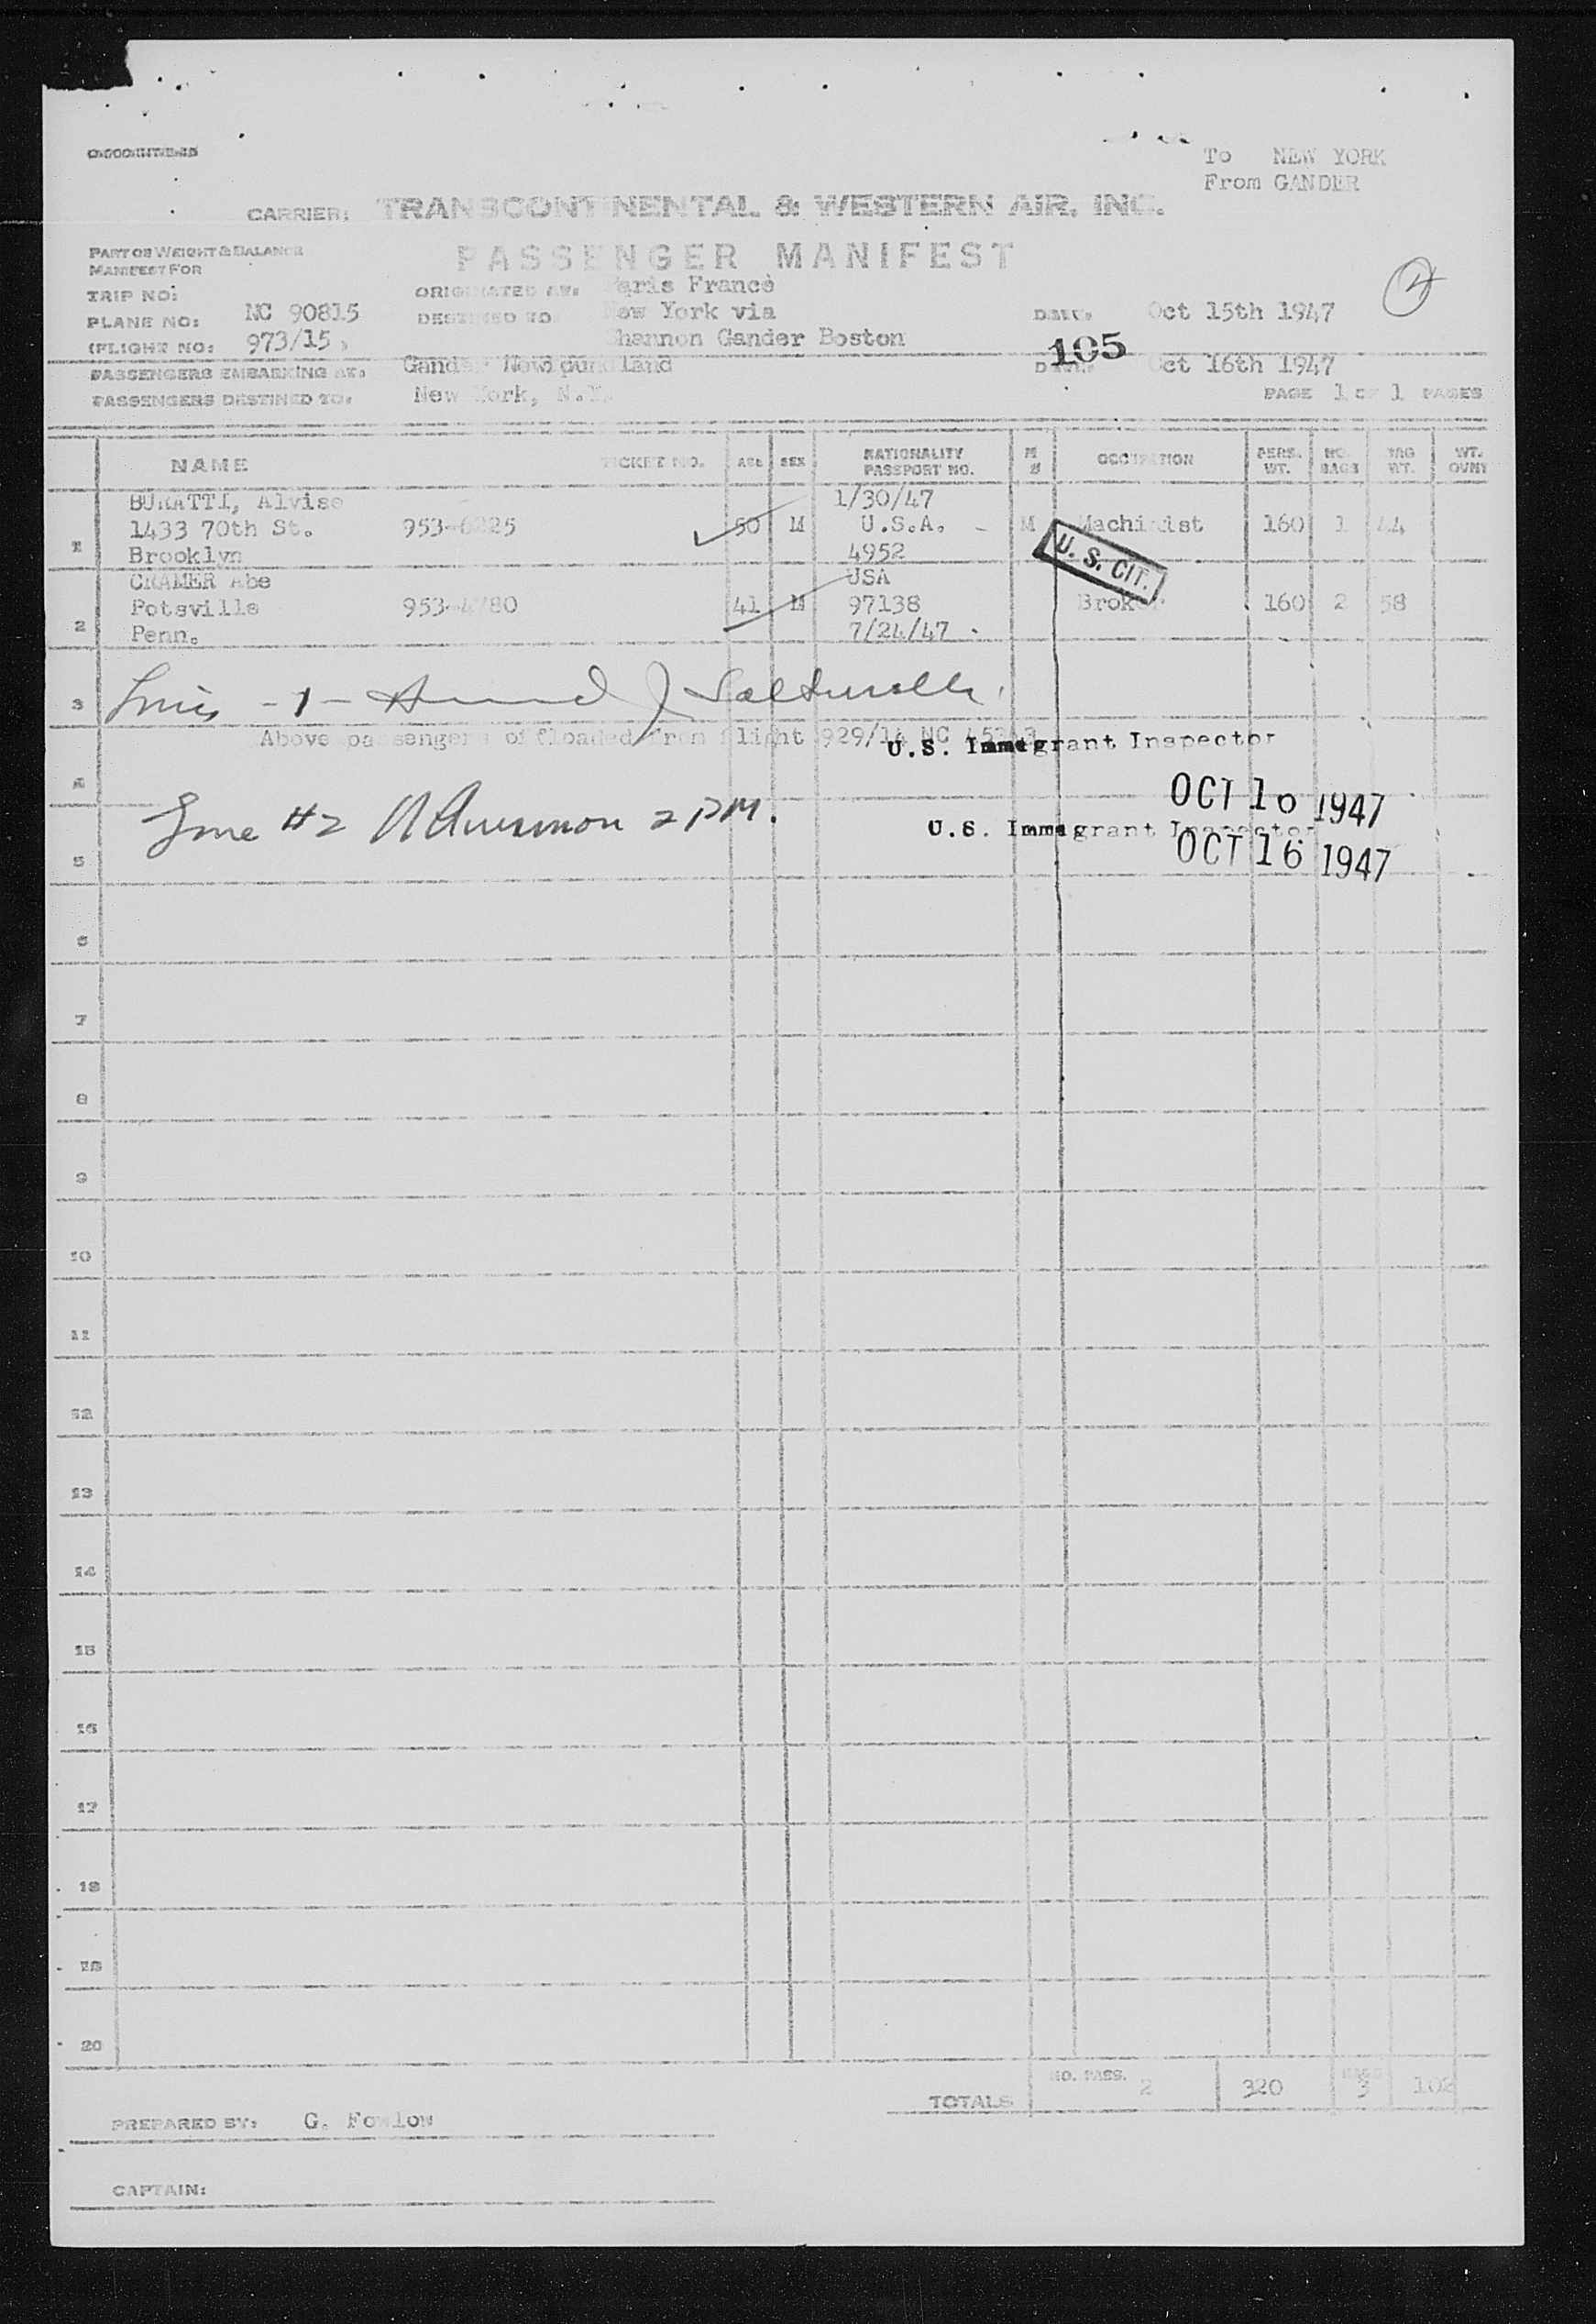 To NEW YORK
From GANDER
CARRIER: TRANSCONTINENTAL & WESTERN AIR, INC.
PASSENGER MANIFEST
PART OF WEIGHT & BALANCE
MANIFEST FOR
TRIP NO:
ORIGINATED AT: Paris France
PLANE NO: NC 90815
DESTINED TO New York via
DATE: Oct 15th 1947
(FLIGHT NO: 973/15
Shannon Gander Boston
105
PASSENGERS EMBARKING AT: Gander Newfoundland
DATE: Oct 16th 1947
PASSENGERS DESTINED TO: New York, N.Y.
PAGE 1 OF 1 PAGES
NAME TICKET NO. AGE SEX NATIONALITY PASSPORT NO. M S OCCUPATION PERS. WT. NO. BAGS BAG WT. WT. OVNT
BURATTI, Alvise 1/30/47
1433 70th St. 953- 50 M U.S.A. M Machinist 160 1 44
1 Brooklyn 4952
U. S. CIT.
CRAMER Abe USA
Potsville 953- 41 M 97138 Broker 160 2 58
2 Penn. 7/24/47
3
Above passengers offloaded from flight 929/14 NC
U.S. Immigrant Inspector
4
OCT 16 1947
Line #2 2 PM.
U.S. Immigrant Inspector
OCT 16 1947
5
6
7
8
9
10
11
12
13
14
15
16
17
18
19
20
TOTALS NO. PASS. 2 320 BAGS 3 102
PREPARED BY: G. Fowlow
CAPTAIN: